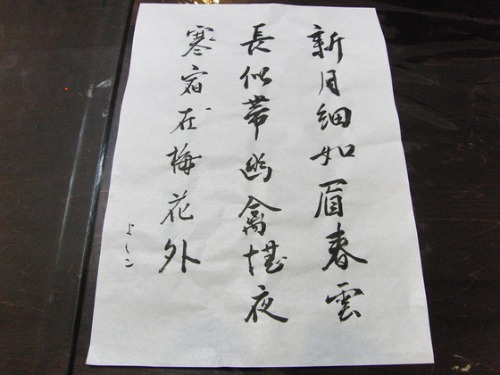 新月細如眉春雲
長似帯幽禽夜
寒宿在梅花外
よしこ